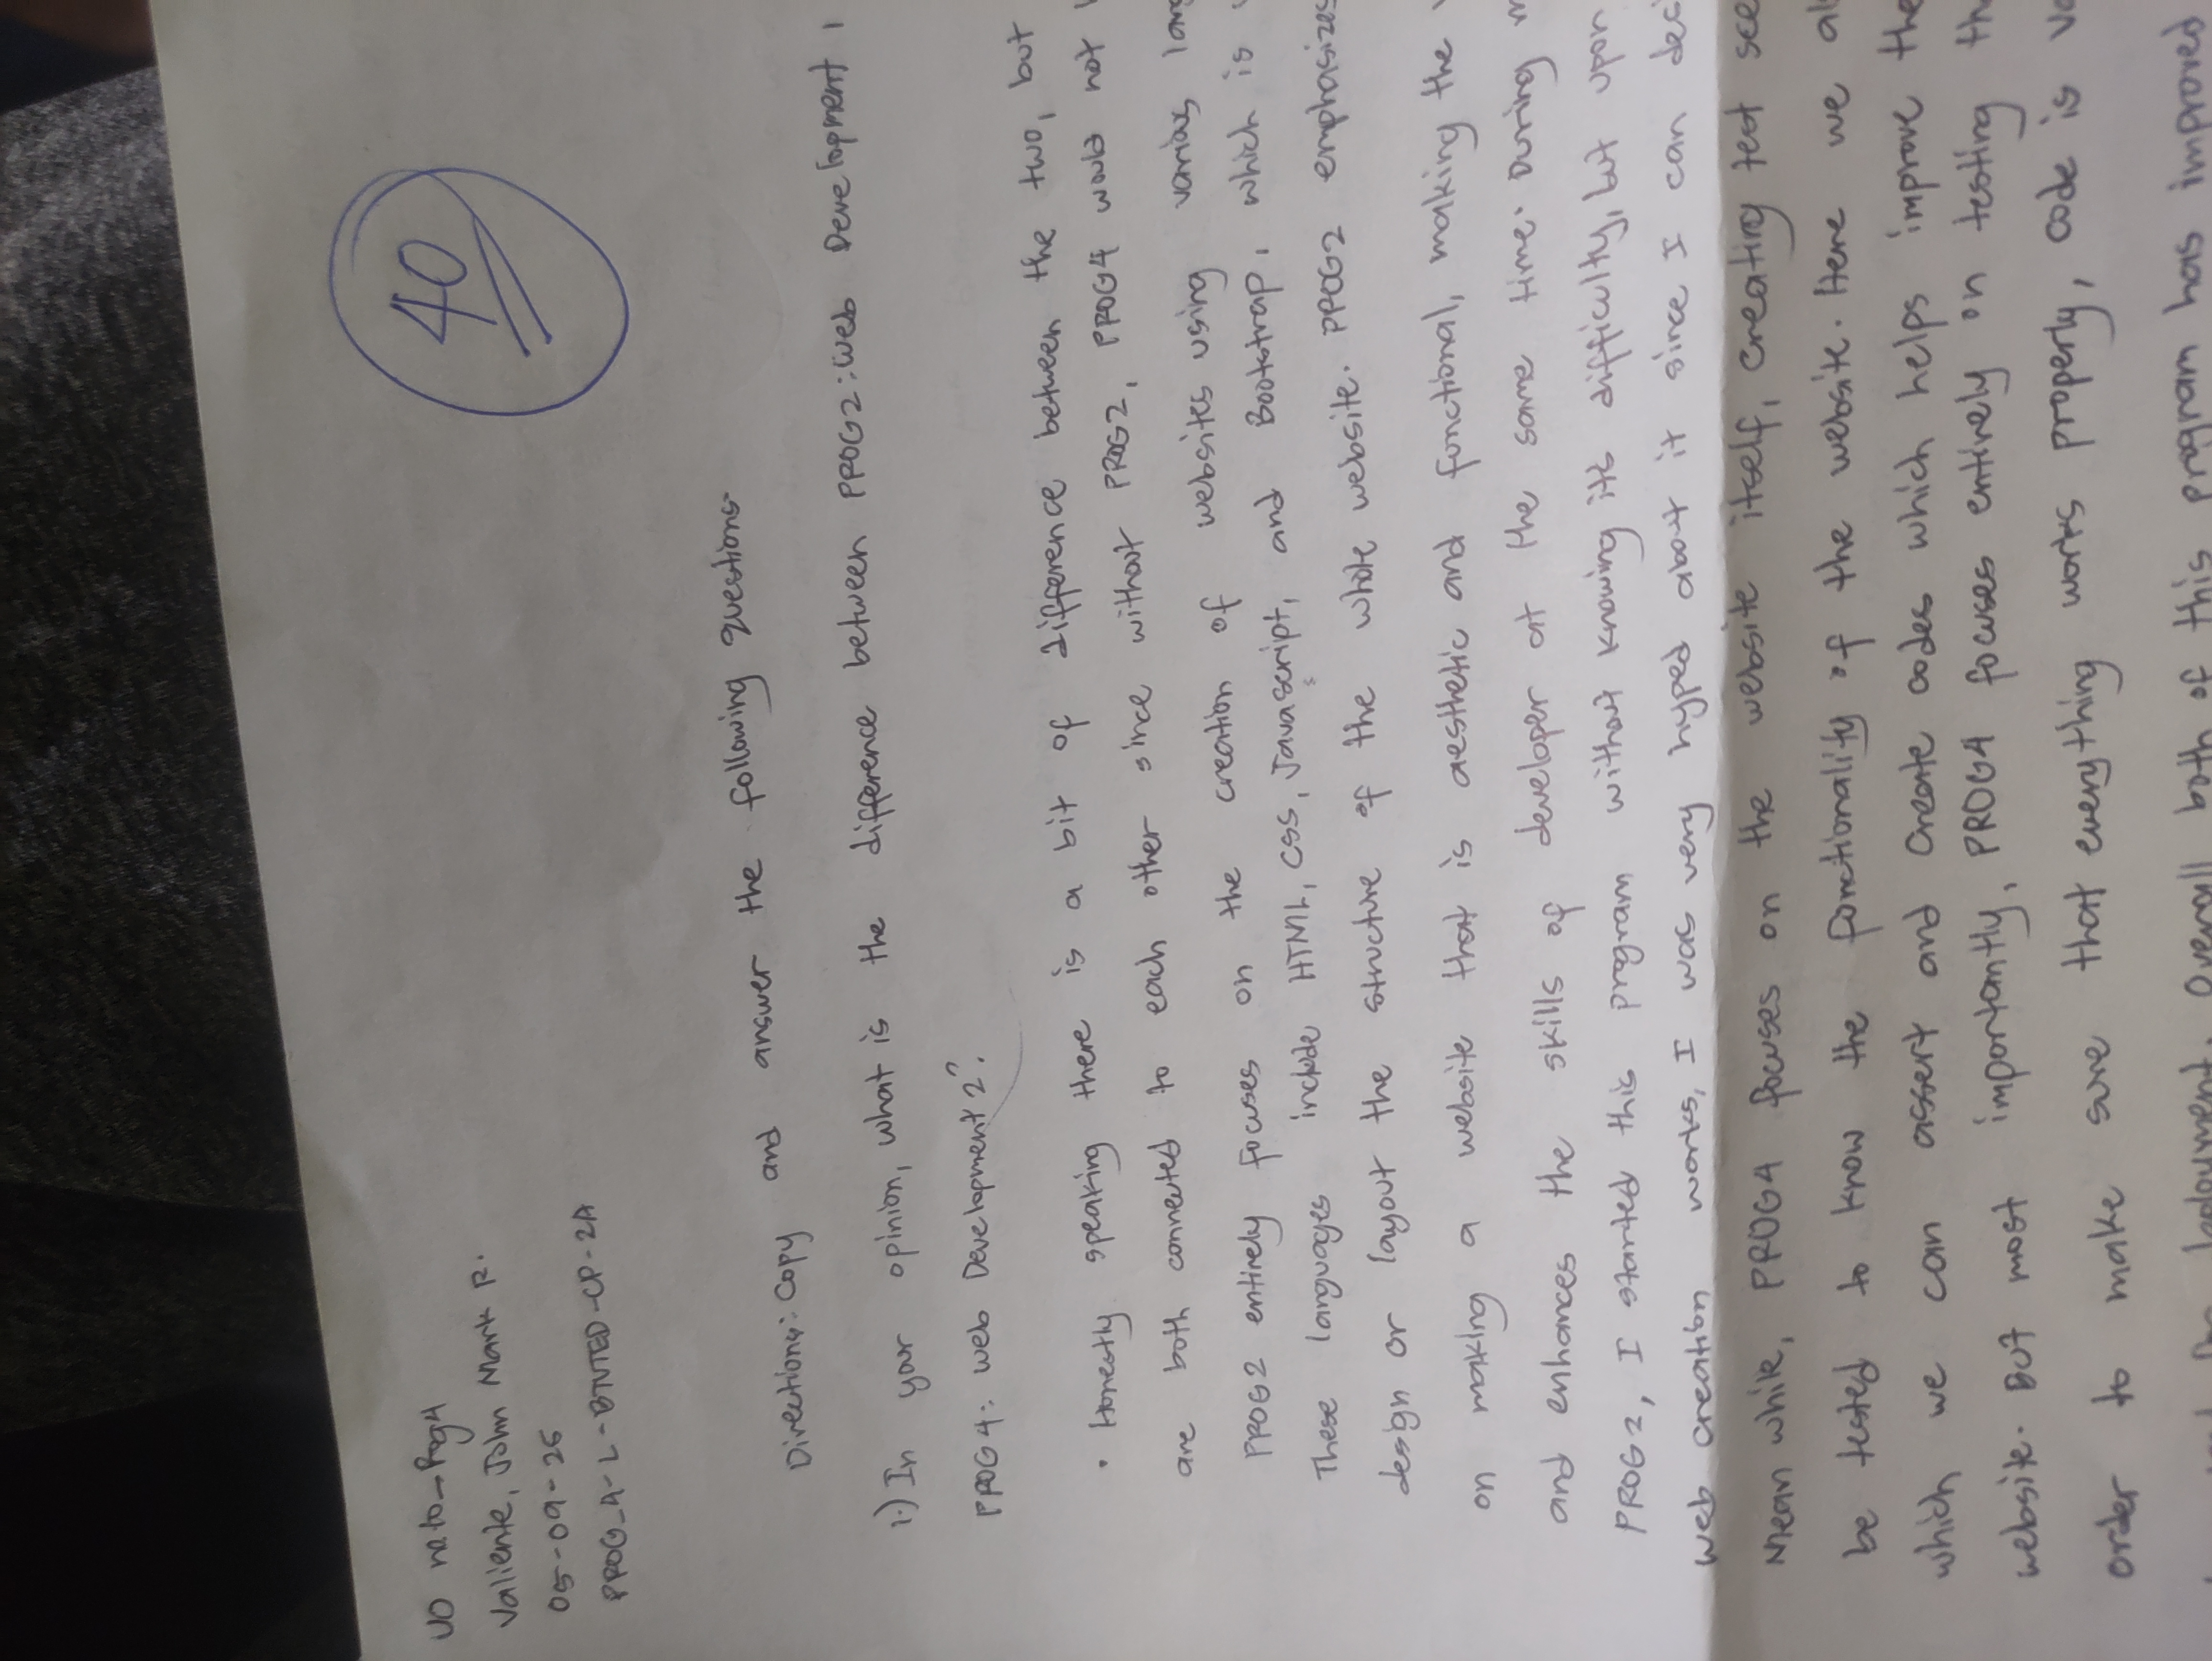 40
Valiente, John Mark R.
05-09-26
PROG_4-L-BTVTED-CP-2A
Directions: Copy and answer the following questions.
1.) In your opinion, what is the difference between PROG2: Web Development 1
PROG4: Web Development 2?
• Honestly speaking there is a bit of difference between the two, but
are both connected to each other since without PROG2, PROG4 would not
PROG2 entirely focuses on the creation of websites using various
These languages include HTML, CSS, Javascript, and Bootstrap, which is
design or layout the structure of the whole website. PROG2 emphasizes
on making a website that is aesthetic and functional, making the
and enhances the skills of developer at the same time. During
PROG2, I started this program without knowing it's difficulty, but upon
web creation works, I was very hyped about it since I can
Mean while, PROG4 focuses on the website itself, creating test
be tested to know the functionality of the website. Here we
which we can assert and create codes which helps improve the
website. But most importantly, PROG4 focuses entirely on testing
order to make sure that everything works properly, code is
Overall both of this program has improved